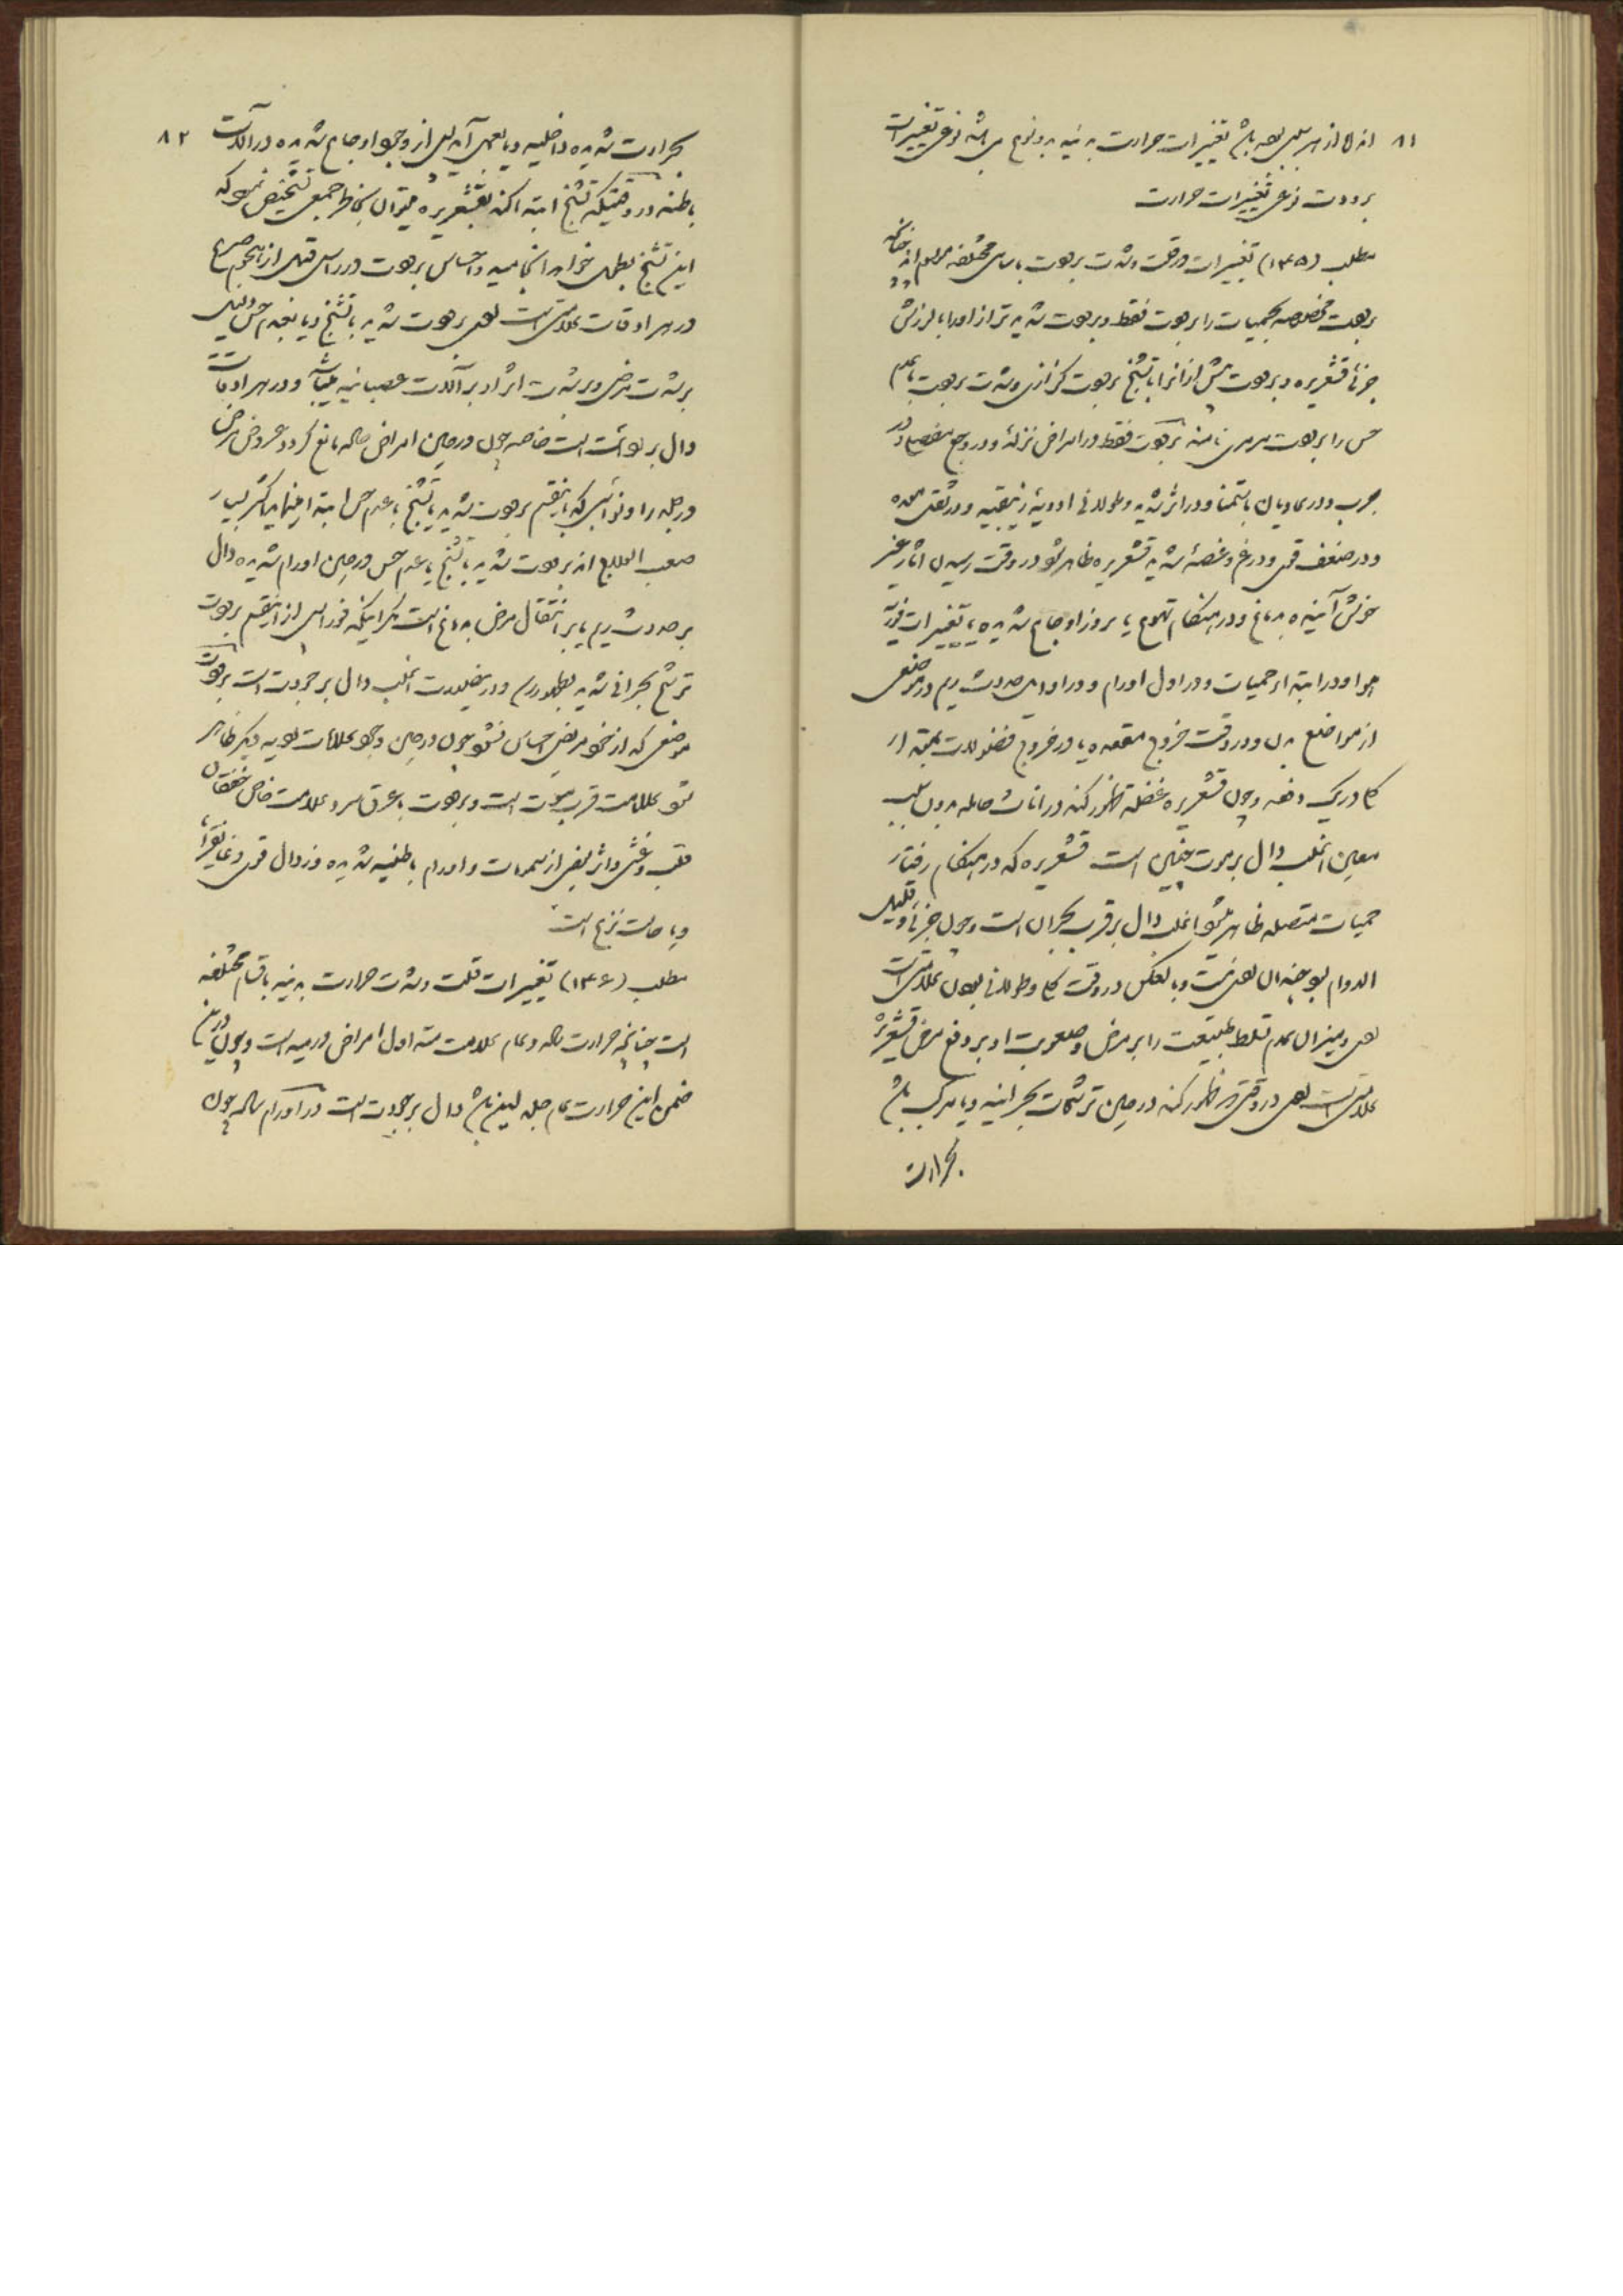 ۸۱
از هر سببی بوده باشد تغییرات حرارت بدنیه بدو نوع می باشد نوعی تغییرات
برودت نوعی تغییرات حرارت
مطلب (۱۴۵) تغییرات رقت و شدت برودت باسامی مختلفه موسوم اند چنانکه
برودت مخصوصه بحمیات را برودت فقط و برودت شدید تر از او را با لرزش
جزئی قشعریره و برودت بیش از آنرا با تشنج برودت کزازی و شدت برودت با عدم
حس را برودت مرمری نامند برودت فقط در امراض نزله و در وجع مفاصل و در
جرب و در مادیان باستمنا و در اثر شدید و طولانی ادویه زیبقیه و در ثقل معده
و در ضعف قوی و در غم و غصه شدید قشعریره ظاهر شود در وقت رسیدن آثار غیر
خوش آینده بدماغ و در هنگام تهوع یا بروز اوجاع شدیده یا تغییرات فوریه
هوا و در ابتدا حمیات و در اول اورام و در اوایل حدوث ریم در موضعی
از مواضع بدن و در وقت خروج مقعده یا در خروج فضولات مجتمعه از
کلا در یک دفعه و چون قشعریره غفلة ظهور کند در اناث حامله بدون سبب
معین اغلب دال بر موت جنین است قشعریره که در هنگام رفتار
حمیات متصله ظاهر شود اغلب دال بر قرب بحران است و چون جزئی و قلیل
الدوام بود چندان بعدی نیست و بالعکس در وقت کلی و طولانی بودن علامتی است
بدی و میزان عدم تسلط طبیعت را بر مرض و صعوبت او بر دفع مرض قشعریره
علامتی است بدی در وقتی که ظهور کند در حین ترشحات بحرانیه و یا مرکب باشد
بحرارت
۸۲
بحرارت شدیده داخلیه و یا بعمل آمدنی از وجود اوجاع شدیده در آلات
باطنه در وقتیکه تشنج ابتدا کند بقشعریره میتوان بخاطر جمعی تشخیص نمود که
این تشنج بطول خواهد انجامید و احساس برودت در راس قبل از هجوم صرع
در هر اوقات علامتی است بدی برودت شدید با تشنج و یا بعدم حس دلیل
بر شدت مرض و بر شدت اثر او بر آلات عصبانیه میباشد و در هر اوقات
دال بر بدی است خاصه چون در حین امراض حاده مانع گردد عروض مرض
در جلد را و نوائبی که باین قسم برودت شدید با تشنج یا عدم حس ابتدا مینمایند اکثر بسیار
صعب العلاج اند برودت شدید با تشنج یا عدم حس در حین اورام شدیده دال
بر حدوث ریم یا بر انتقال مرض بدماغ است مگر اینکه فورا پس از این قسم برودت
ترشح بحرانی شدید بظهور رسد و در این صورت اغلب دال بر جودت است برودت
موضعی که از خود مریض احساس نشود چون در حین وجود علامات بدیه دیگر ظاهر
شود علامت قرب موت است و برودت با عرق سرد علامت خاص خفقان
قلب و غشی و اثر بعضی از سمومات و اورام باطنیه شدیده و زوال قوی و غانقرایا
و یا حالت نزع است
مطلب (۱۴۶) تغییرات قلت و شدت حرارت بدنیه باقسام مختلفه
است چنانچه حرارت حاده و عام علامت متداول امراض ورمیه است و چون در این
ضمن این حرارت عام جلد لین باشد دال بر جودت است در اورام حاده چون